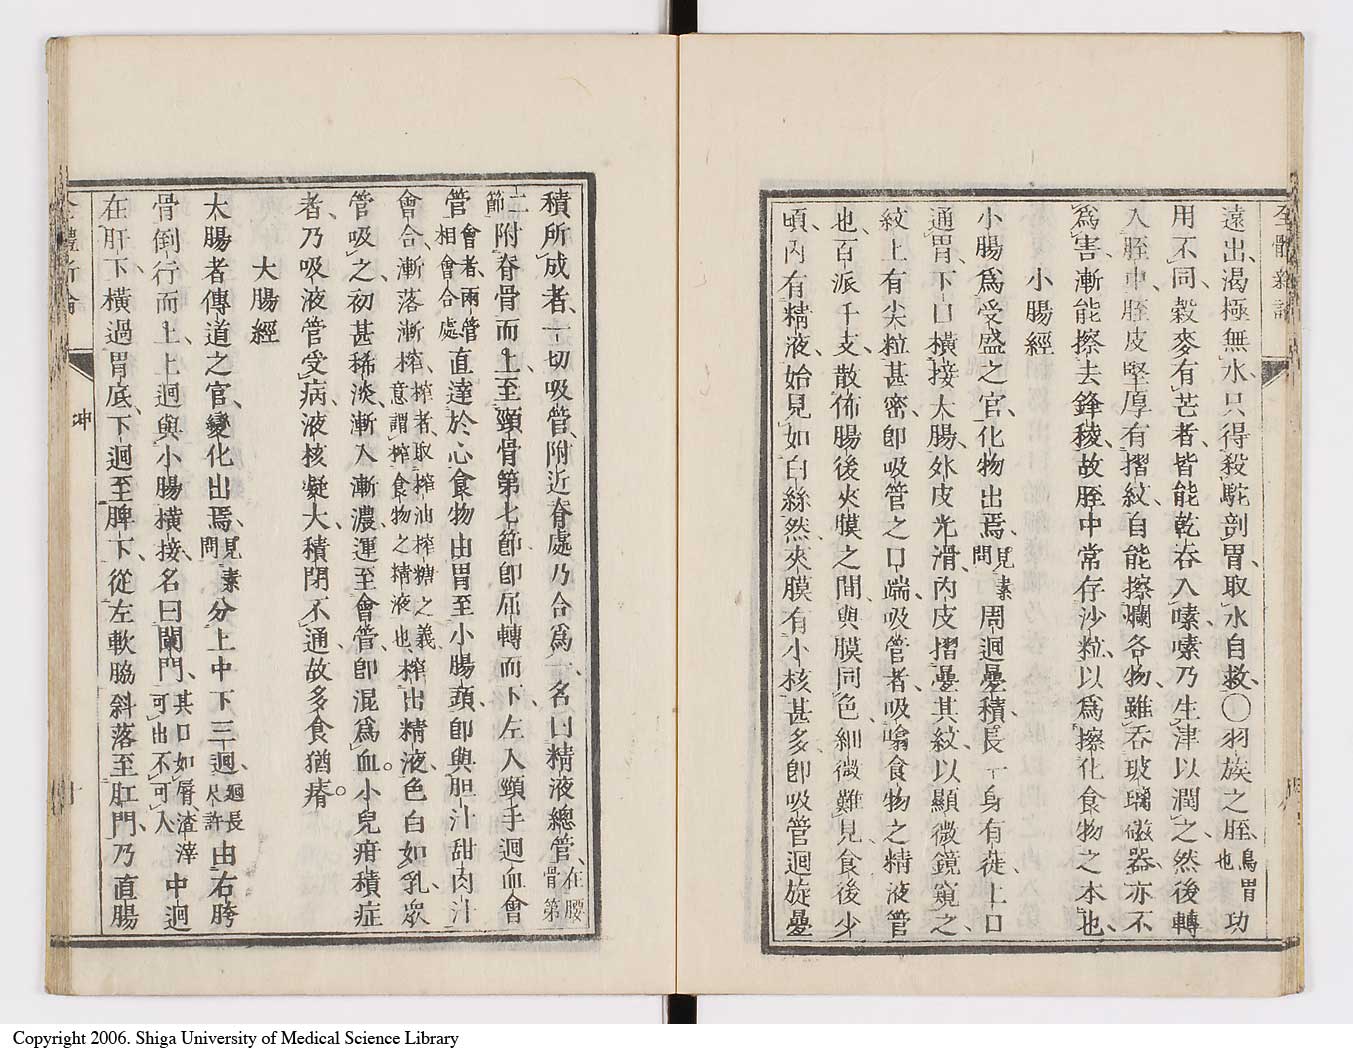 遠出、渴極無水、只得殺駝剖胃、取水自救、〇羽族之胵、鳥胃也功
用不同、穀麥有芒者、皆能乾吞入嗉、嗉乃生津以潤之、然後轉
入胵中、胵皮堅厚有摺紋、自能擦爛各物、雖吞玻璃磁器、亦不
爲害、漸能擦去鋒稜、故胵中常存沙粒、以爲擦化食物之本也、
小腸經
小腸爲受盛之官、化物出焉、見素問周迴疊積、長一身有徙、上口
通胃、下口橫接大腸、外皮光滑、內皮摺疊其紋、以顯微鏡窺之、
紋上有尖粒甚密、卽吸管之口端、吸管者、吸噏食物之精液管
也、百派千支、散佈腸後夾膜之間、與膜同色、細微難見、食後少
頃、內有精液、始見如白絲然、夾膜有小核甚多、卽吸管迴旋疊
積所成者、一切吸管、附近脊處乃合爲一、名曰精液總管、在腰骨第
二節附脊骨而上、至頸骨第七節卽屈轉而下、左入頸手迴血會
管會者、兩管相會合處直達於心、食物由胃至小腸頭、卽與胆汁甜肉汁
會合、漸落漸榨、榨者、取榨油榨糖之義、意謂榨食物之精液也榨出精液、色白如乳、眾
管吸之、初甚稀淡、漸入漸濃、運至會管、卽混爲血。小兒疳積症
者、乃吸液管受病、液核凝大、積閉不通、故多食猶瘠。
大腸經
大腸者傳道之官、變化出焉、見素問分上中下三迴、迴長尺許由右胯
骨倒行而上、上迴與小腸橫接、名曰闌門、其口如脣、渣滓可出不可入中迴
在肝下、橫過胃底、下迴至脾下、從左軟脇斜落至肛門、乃直腸
坤